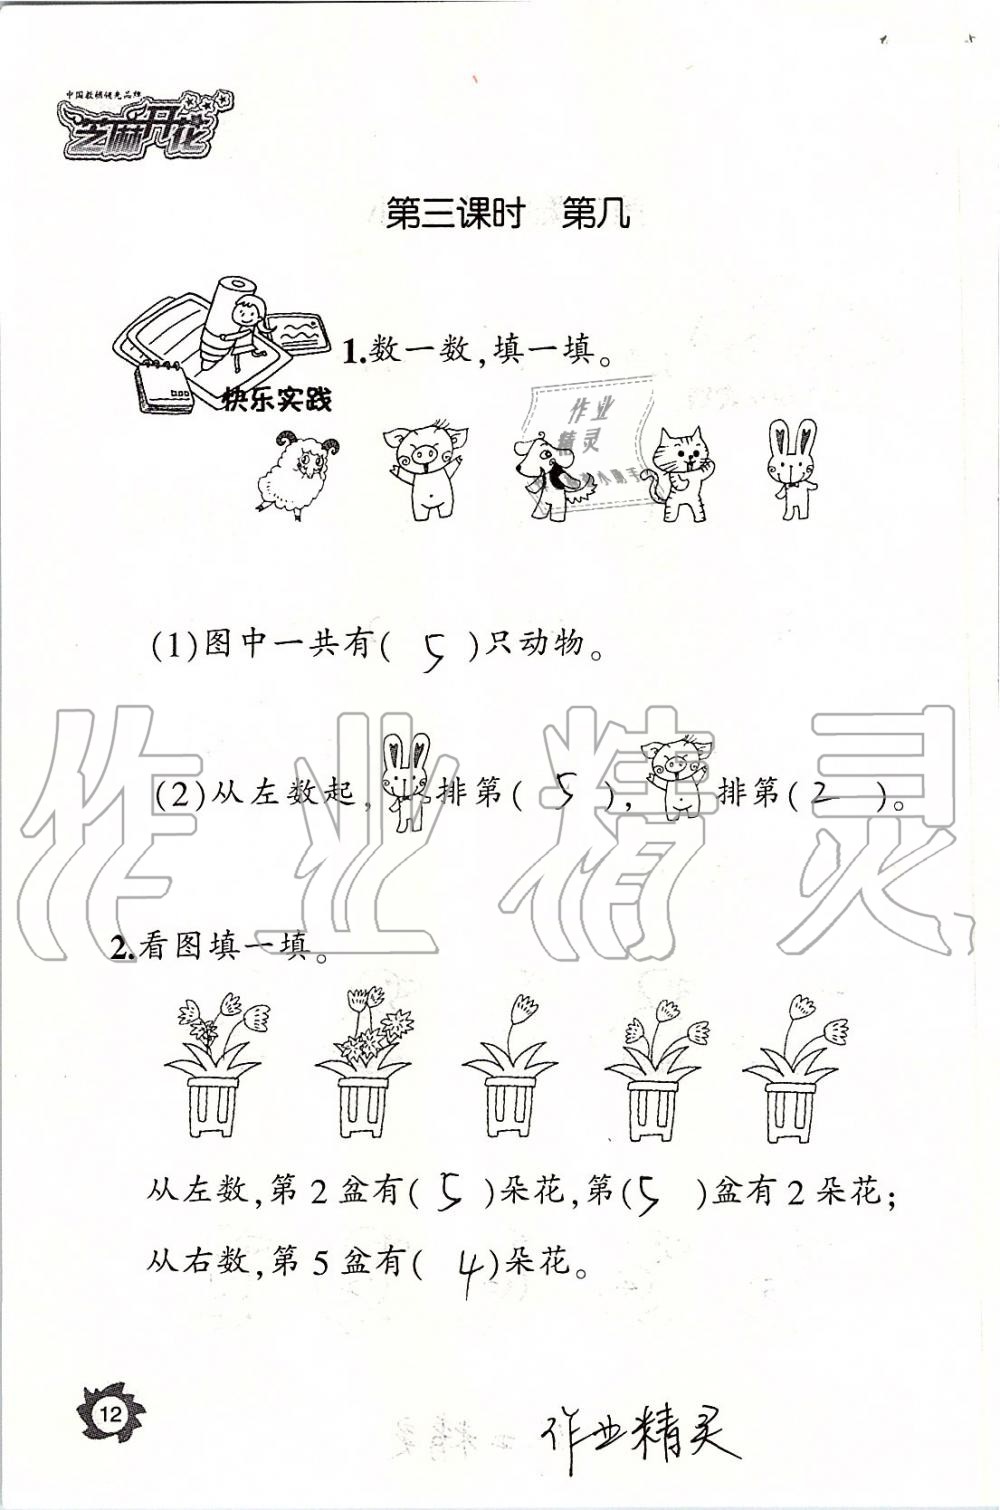 中国教辅领先品牌
芝麻开花
第三课时 第几
快乐实践
1.数一数,填一填。
作业
精灵
(1)图中一共有( 5 )只动物。
(2)从左数起, 排第( 5 ), 排第( 2 )。
作业精灵
2.看图填一填。
从左数,第2盆有( 5 )朵花,第(5 )盆有2朵花;
从右数,第5盆有( 4)朵花。
12
作业精灵